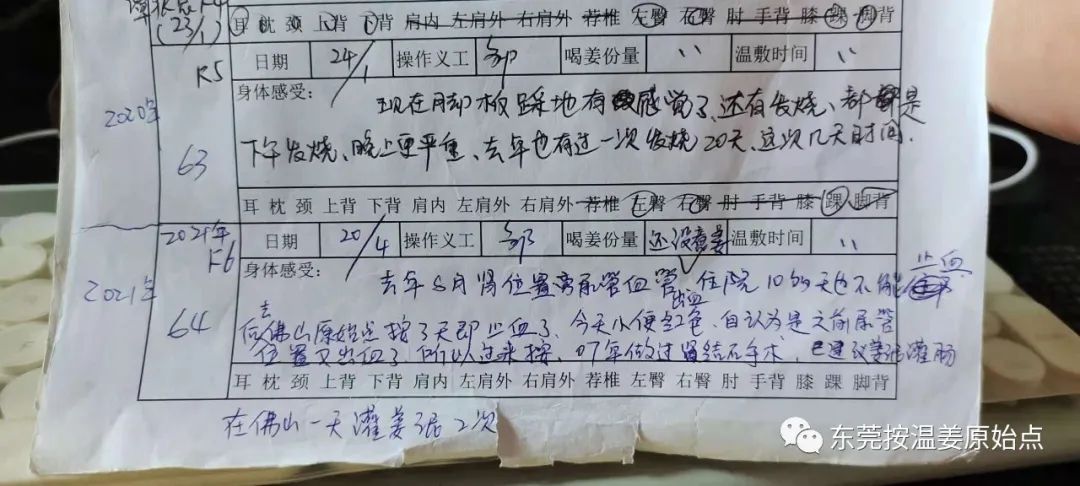 (23/1) 耳 枕 颈 上背 下背 肩内 左肩外 右肩外 荐椎 左臀 右臀 肘 手背 膝 踝 脚背
K5 日期 24/1 操作义工 邹 喝姜份量 '' 温敷时间 ''
2020年 身体感受: 现在脚板踩地有感觉了、还有发烧、都是
63 下午发烧、晚上更严重、去年也有过一次发烧20天、这次几天时间.
耳 枕 颈 上背 下背 肩内 左肩外 右肩外 荐椎 左臀 右臀 肘 手背 膝 踝 脚背
2021年 K6 日期 20/4 操作义工 邹 喝姜份量 还没喝姜 温敷时间 ''
2021年 身体感受: 去年8月肾位置旁尿管血管出血 住院10多天也不能止血
64 去佛山原始点按了3天即止血了、今天小便红色、自认为是之前尿管
位置又出血了、所以过来按、07年做过肾结石手术、已建议姜泥灌肠
耳 枕 颈 上背 下背 肩内 左肩外 右肩外 荐椎 左臀 右臀 肘 手背 膝 踝 脚背
在佛山一天灌姜泥2次
东莞按温姜原始点